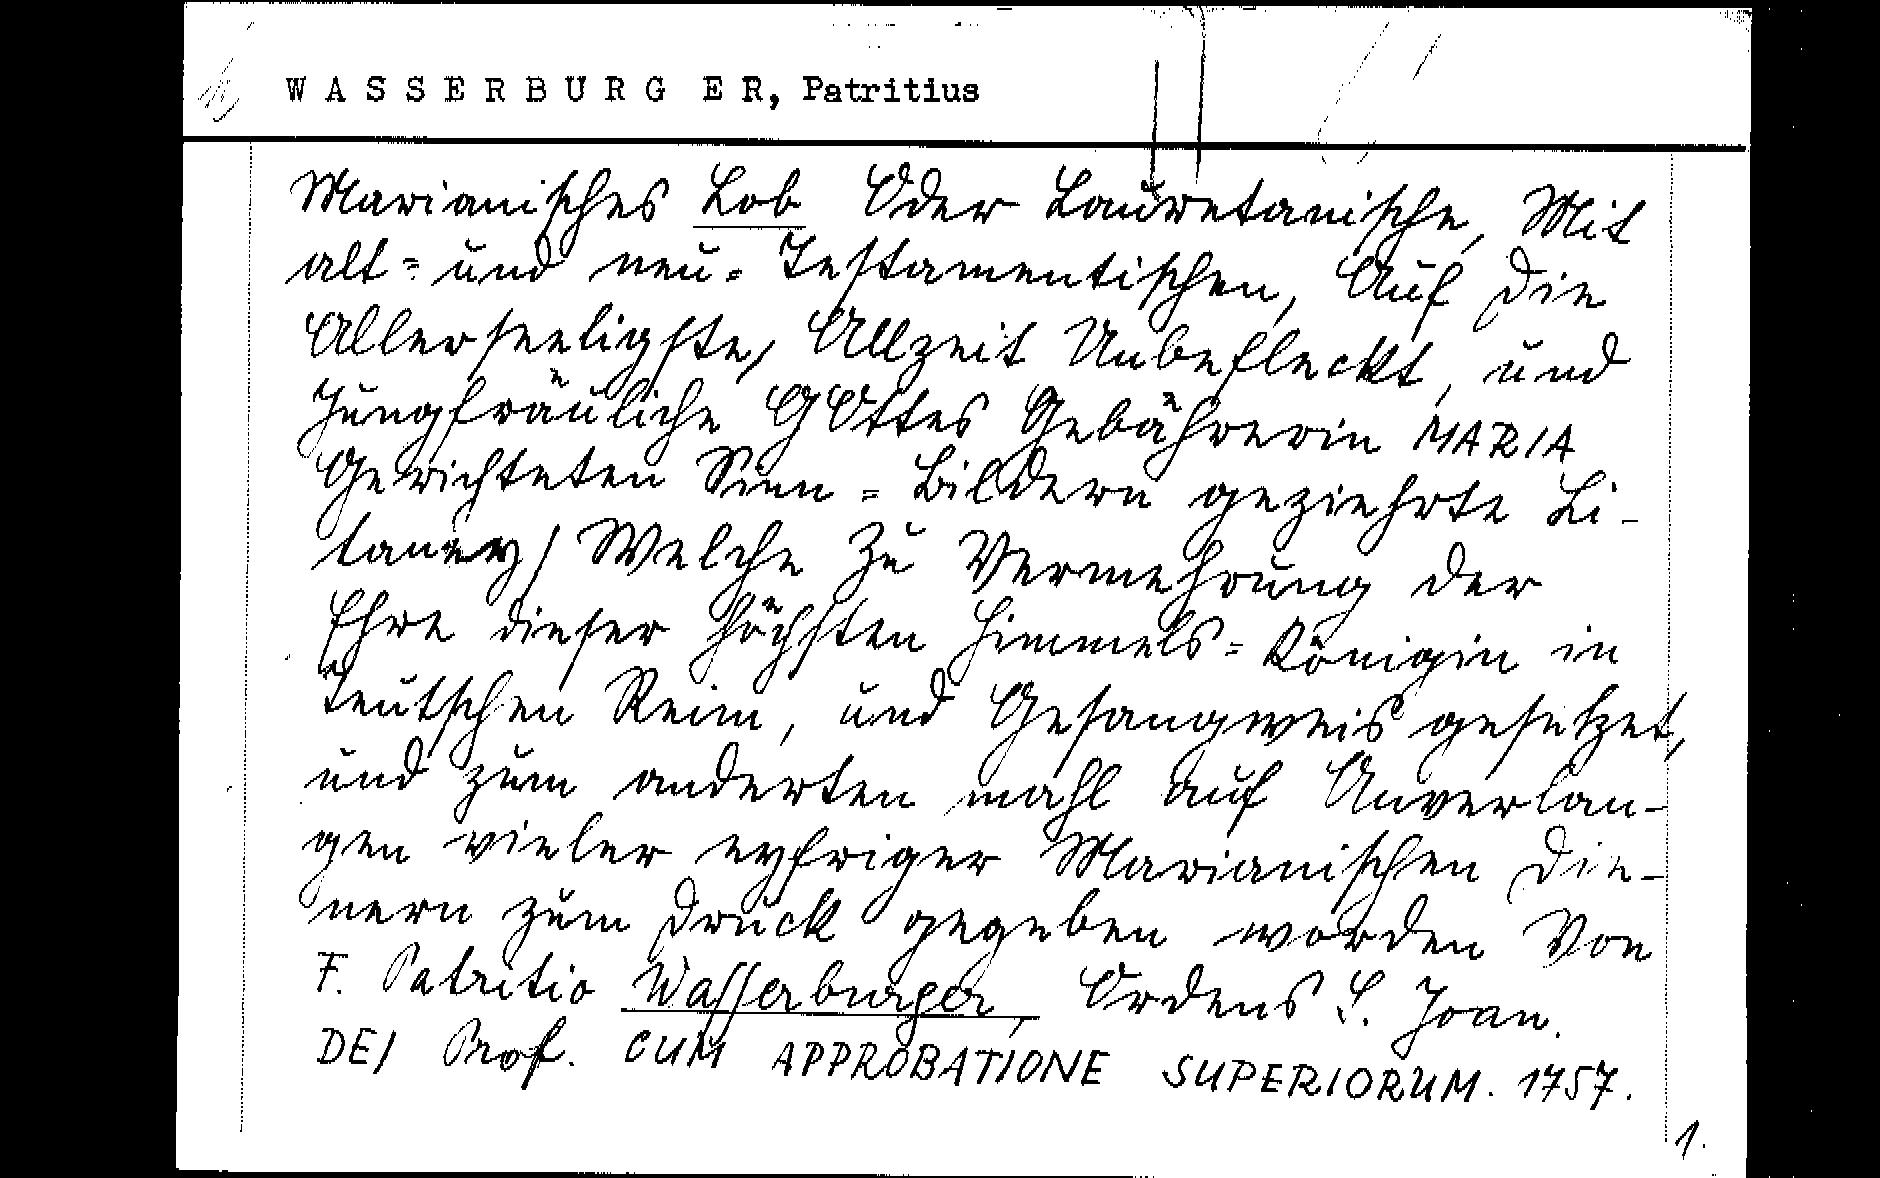 WASSERBURGER, Patritius
Marianisches Lob Oder Lauretanische, Mit
alt= und neu= Testamentischen, Auf die
Allerseeligste, Allzeit Unbefleckt, und
Jungfräuliche GOttes Gebährerin MARIA
Gerichteten Sinn=Bildern geziehrte Li-
taney/ Welche Zu Vermehrung der
Ehre dieser höchsten Himmels=Königin in
teutschen Reim, und Gesangweis gesetzet,
und zum anderten mahl auf Anverlan-
gen vieler eyfriger Marianischen Die-
nern zum Druck gegeben worden Von
F. Patritio Wasserburger, Ordens S. Joan.
DEI Prof. CUM APPROBATIONE SUPERIORUM. 1757.
1.